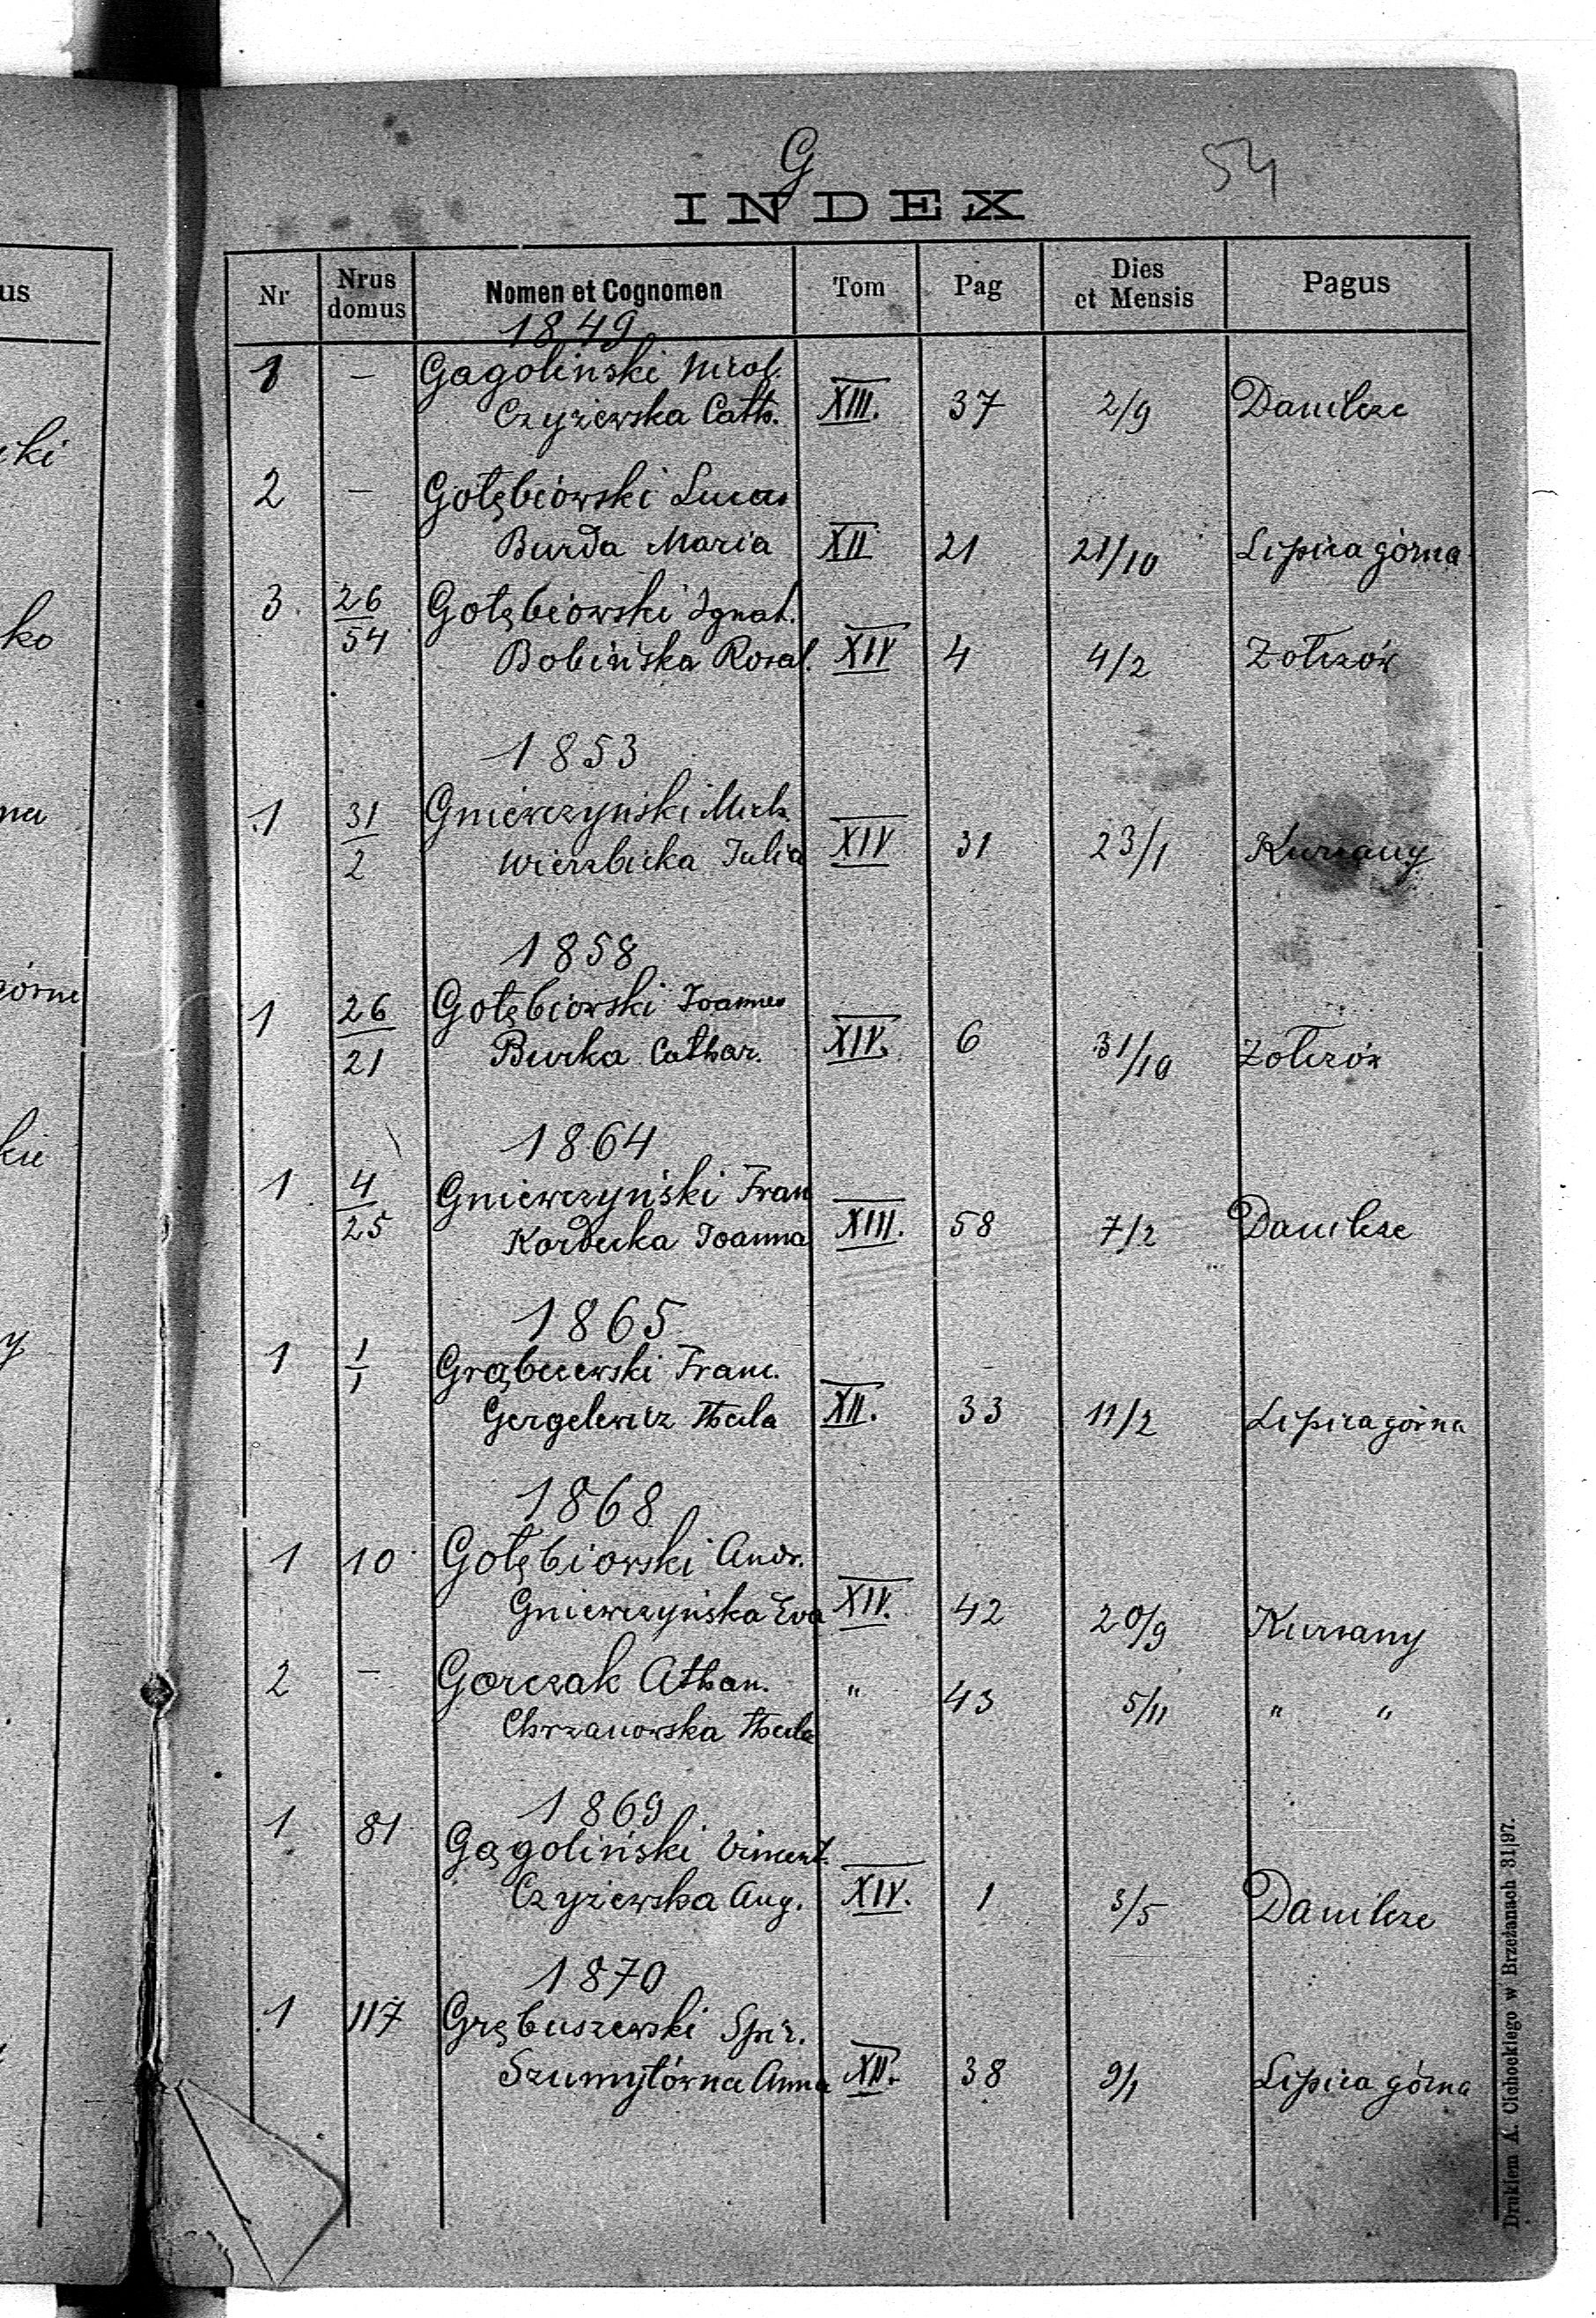 G
54
INDEX
Nr Nrus domus Nomen et Cognomen Tom Pag Dies et Mensis Pagus
1849
1 — Gagoliński Nicol.
Czyżewska Cath. XIII. 37 2/9 Danilcze
2 — Gołębiowski Lucas
Burda Maria XII 21 21/10 Lipica górna
3. 26/54 Gołębiowski Ignat.
Bobińska Rosal. XIV 4 4/2 Żołczów
1853
1 31/2 Gniewczyński Mich.
Wierzbicka Julia XIV 31 23/1 Kurzany
1858
1 26/21 Gołębiowski Joannes
Burka Cathar. XIV. 6 31/10 Żołczów
1864
1 4/25 Gniewczyński Fran
Kordecka Joanna XIII. 58 7/2 Danilcze
1865
1 1/1 Grąbczewski Franc.
Gergelewicz Thecla XII. 33 11/2 Lipica górna
1868
1 10 Gołębiowski Andr.
Gniewczyńska Eva XIV. 42 20/9 Kurzany
2 — Gorczak Athan. " 43 5/11 " "
Chrzanowska Thecla
1869
1 81 Gągoliński Vincent.
Czyżewska Aug. XIV. 1 3/5 Danilcze
1870
1 117 Grębuszewski Spir.
Szumyłówna Anna XII. 38 9/1 Lipica górna
Drukiem A. Cichockiego w Brzeżanach 31|97.
us
ki
ko
na
górne
kie
y